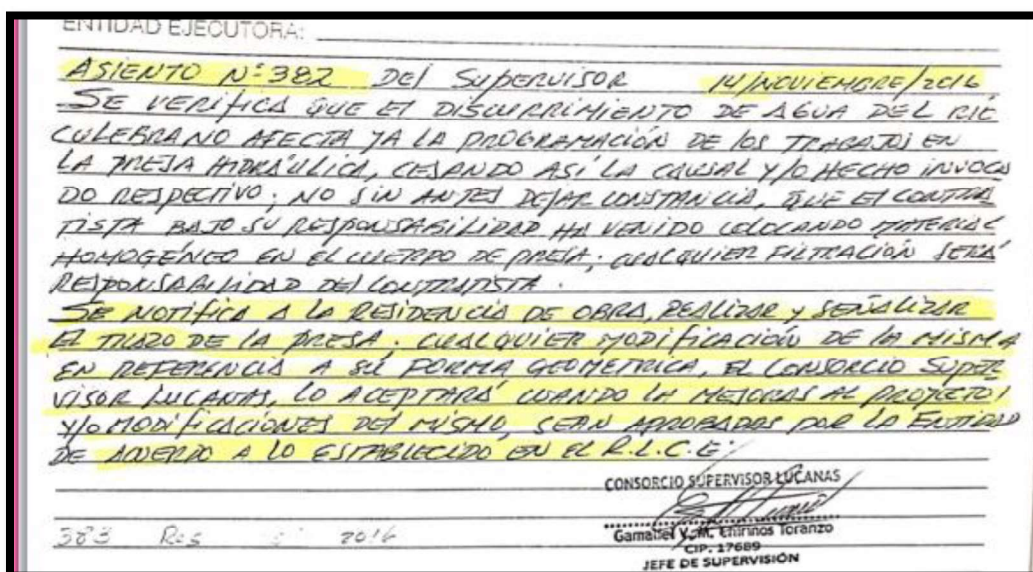 ENTIDAD EJECUTORA:
ASIENTO Nº 382 DEL SUPERVISOR 14/NOVIEMBRE/2016
SE VERIFICA QUE EL DISCURRIMIENTO DE AGUA DEL RIO
CULEBRA NO AFECTA YA LA PROGRAMACIÓN DE LOS TRABAJOS EN
LA PRESA HIDRÁULICA, CESANDO ASÍ LA CAUSAL Y/O HECHO INVOCA
DO RESPECTIVO; NO SIN ANTES DEJAR CONSTANCIA, QUE EL CONTRA
TISTA BAJO SU RESPONSABILIDAD HA VENIDO COLOCANDO MATERIAL
HOMOGÉNEO EN EL CUERPO DE PRESA; CUALQUIER FILTRACIÓN SERÁ
RESPONSABILIDAD DEL CONTRATISTA.
SE NOTIFICA A LA RESIDENCIA DE OBRA, REALIZAR Y SEÑALIZAR
EL TRAZO DE LA PRESA. CUALQUIER MODIFICACIÓN DE LA MISMA
EN REFERENCIA A SU FORMA GEOMÉTRICA, EL CONSORCIO SUPER
VISOR LUCANAS, LO ACEPTARÁ CUANDO LA MEJORAS AL PROYECTO
Y/O MODIFICACIONES DEL MISMO, SEAN APROBADAS POR LA ENTIDAD
DE ACUERDO A LO ESTABLECIDO EN EL R.L.C.E.
CONSORCIO SUPERVISOR LUCANAS
Gamaniel V. M. Chirinos Toranzo
CIP. 17689
JEFE DE SUPERVISIÓN
383 Res 2016